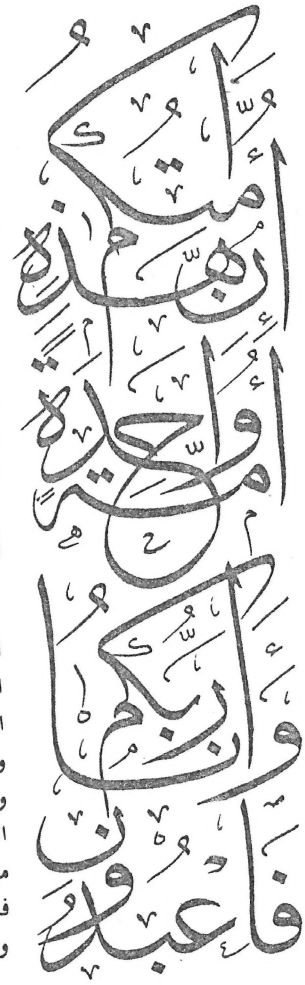 إِنَّ هَذِهِ أُمَّتُكُمْ
أُمَّةً وَاحِدَةً
وَأَنَا رَبُّكُمْ
فَاعْبُدُونِ